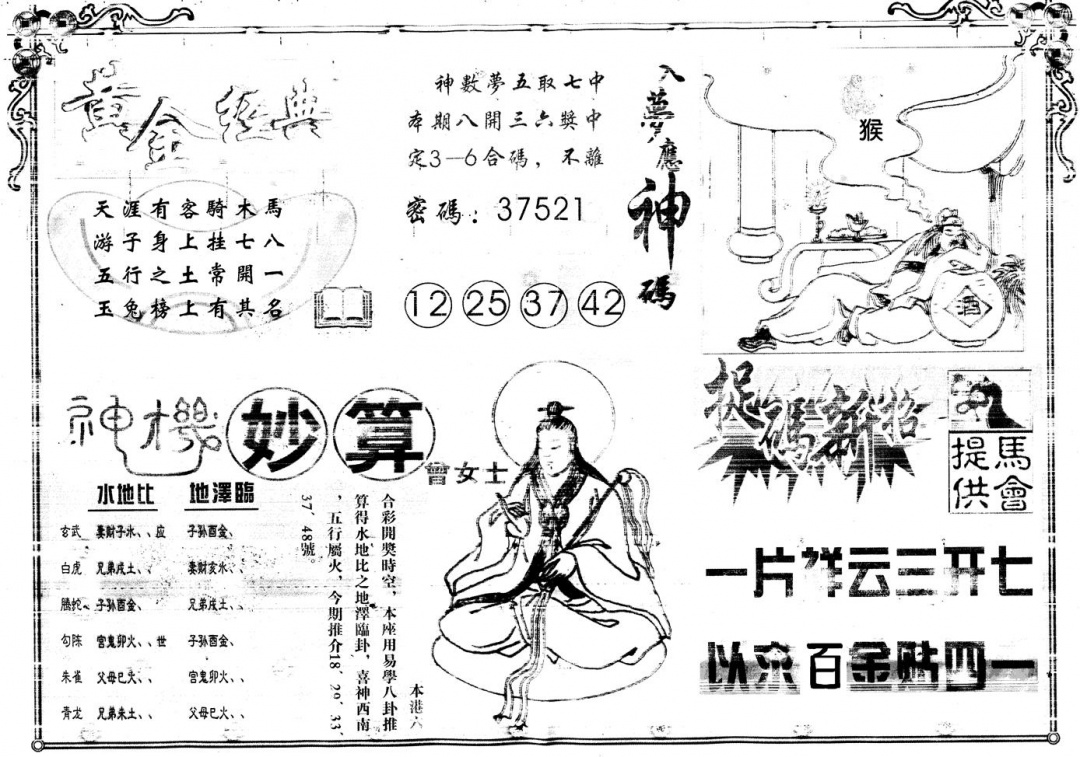 黄金经典
天涯有客騎木馬
游子身上挂七八
五行之土常開一
玉兔榜上有其名
神數夢五取七中
本期八開三六獎中
定3—6合碼，不離
密碼：37521
12 25 37 42
入夢應神碼
猴
酒
神機妙算
曾女士
水地比 地澤臨
玄武 妻財子水、、应 子孙酉金、、
白虎 兄弟戌土、、 妻財亥水、、
騰蛇 子孙酉金、 兄弟戌土、、
勾陈 官鬼卯火、、世 子孙酉金、、
朱雀 父母巳火、、 官鬼卯火、、
青龙 兄弟未土、、 父母巳火、、
本港六
合彩開獎時空，本座用易學八卦推
算得水地比之地澤臨卦，喜神西南
，五行屬火，今期推介18、29、33、
37、48號。
捉碼新招
提供
馬會
一片祥云三开七
以求百金贴四一